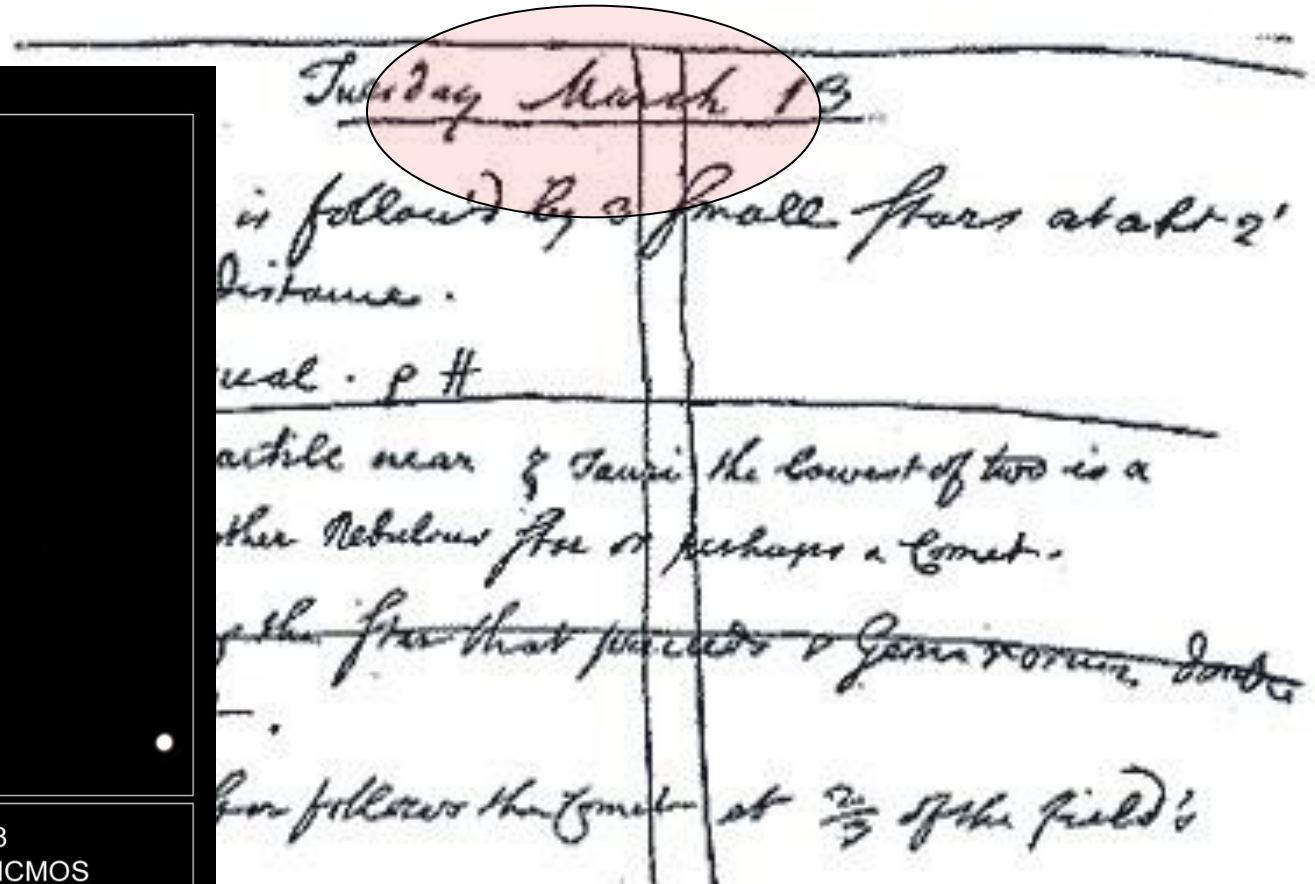 Tuesday March 13
is follow'd by 3 small stars at abt 2'
distance.
ual. p H
artile near ζ Tauri the lowest of two is a
ther Nebulous star or perhaps a Comet.
the star that preceeds Geminorum double
follows the Comet at 2/3 of the field's
3
ICMOS